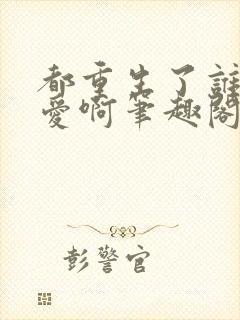 都重生了誰
愛啊筆趣閣
彭警官